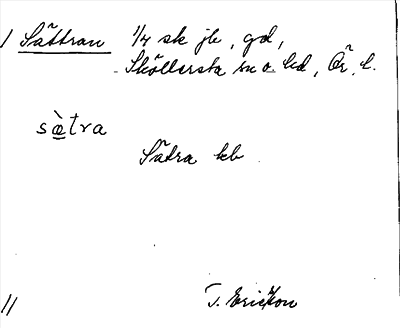 / Sättran 1/4 sk jb, gd,
Sköllersta sn o. hd, Ör. l.
sæ̀tra
Sätra kb
T. Ericson
//